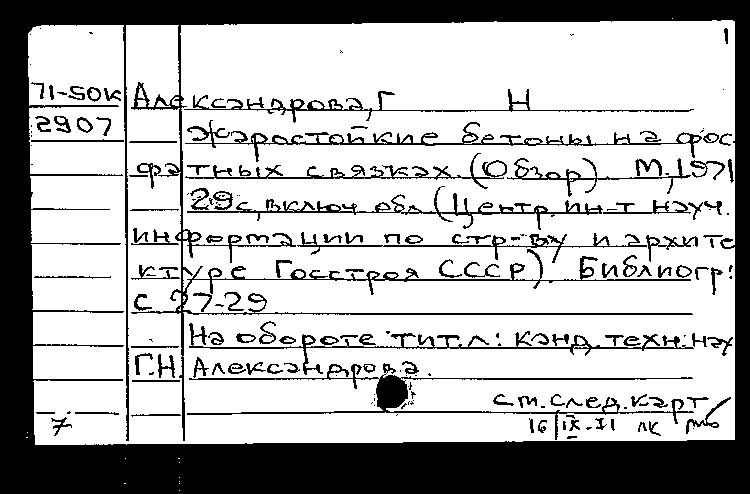 1
71-50к Александрова, Г Н
2907 Жаростойкие бетоны на фос-
фатных связках. (Обзор). М, 1971
29 с, включ. обл. (Центр. ин-т науч.
информации по стр-ву и архите
ктуре Госстроя СССР). Библиогр:
с 27-29
На обороте тит. л: канд. техн. наук
Г.Н. Александрова.
см. след. карт
7 16/IX-71 ЛК